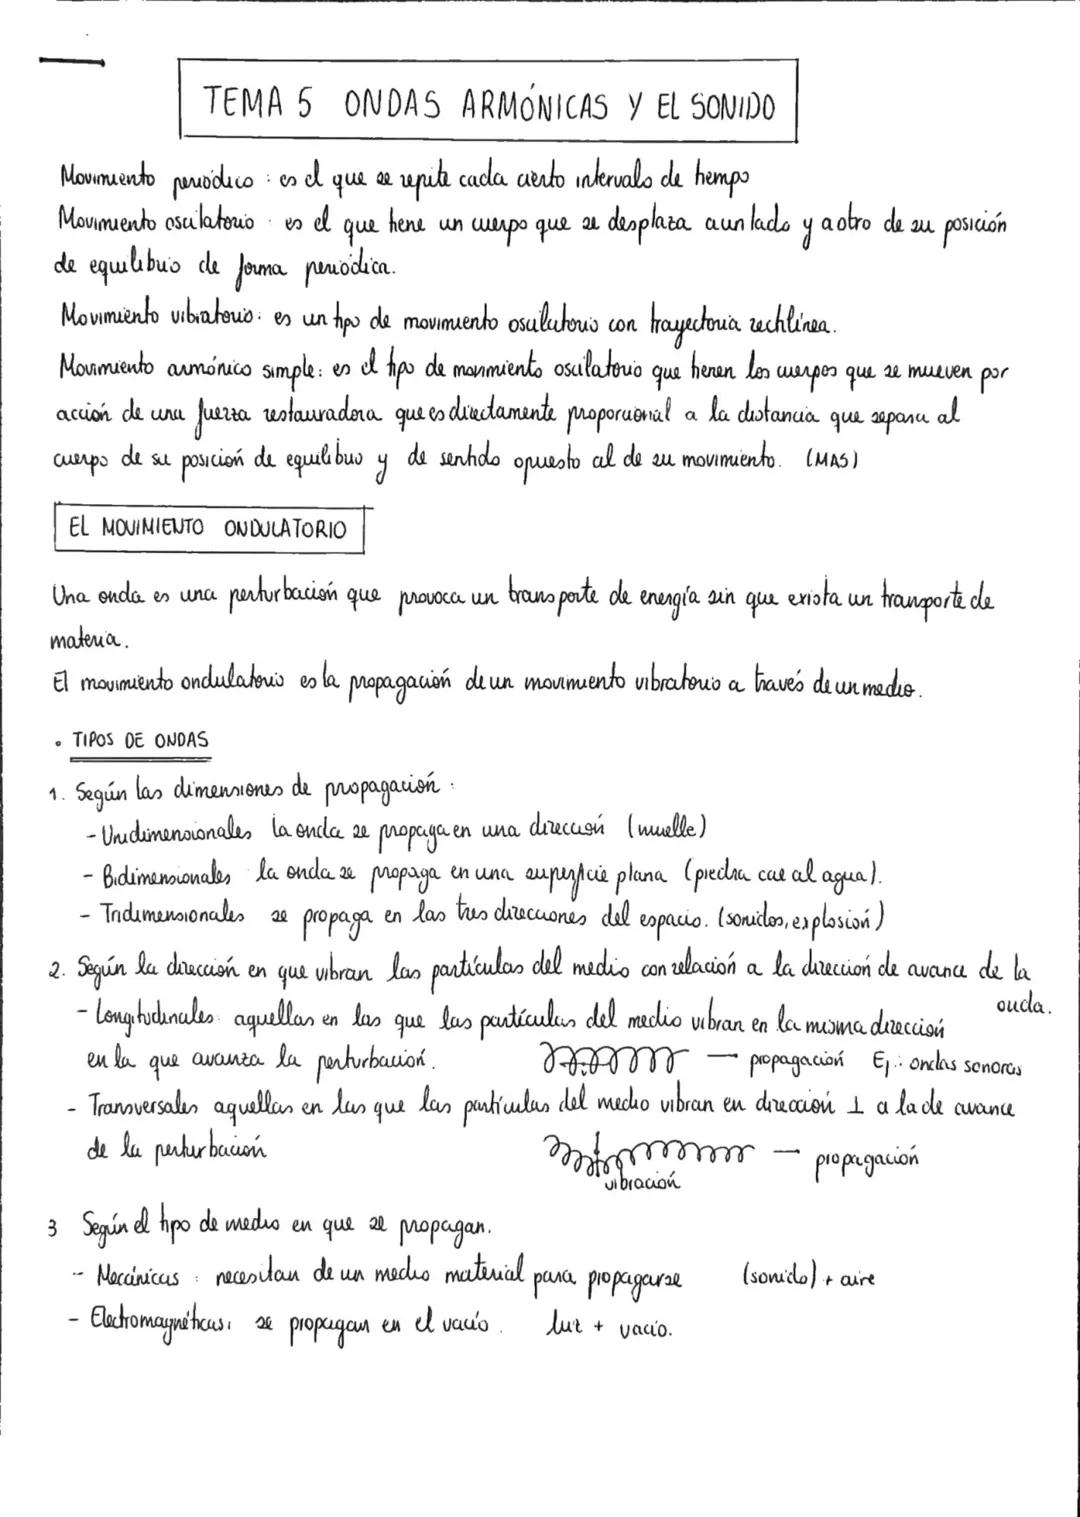 TEMA 5 ONDAS ARMÓNICAS Y EL SONIDO
Movimiento periódico : es el que se repite cada cierto intervalo de tiempo
Movimiento oscilatorio es el que tiene un cuerpo que se desplaza a un lado y a otro de su posición
de equilibrio de forma periódica.
Movimiento vibratorio: es un tipo de movimiento oscilatorio con trayectoria rectilínea.
Movimiento armónico simple: es el tipo de movimiento oscilatorio que tienen los cuerpos que se mueven por
acción de una fuerza restauradora que es directamente proporcional a la distancia que separa al
cuerpo de su posición de equilibrio y de sentido opuesto al de su movimiento. (MAS)
EL MOVIMIENTO ONDULATORIO
Una onda es una perturbación que provoca un transporte de energía sin que exista un transporte de
materia.
El movimiento ondulatorio es la propagación de un movimiento vibratorio a través de un medio.
• TIPOS DE ONDAS
1. Según las dimensiones de propagación :
- Unidimensionales la onda se propaga en una dirección (muelle)
- Bidimensionales la onda se propaga en una superficie plana (piedra cae al agua).
- Tridimensionales se propaga en las tres direcciones del espacio. (sonidos, explosión)
2. Según la dirección en que vibran las partículas del medio con relación a la dirección de avance de la
onda.
- Longitudinales: aquellas en las que las partículas del medio vibran en la misma dirección
en la que avanza la perturbación. — propagación Ej.: ondas sonoras
- Transversales aquellas en las que las partículas del medio vibran en dirección ⊥ a la de avance
de la perturbación — propagación
vibración
3 Según el tipo de medio en que se propagan.
- Mecánicas : necesitan de un medio material para propagarse (sonido) + aire
- Electromagnéticas: se propagan en el vacío. luz + vacío.